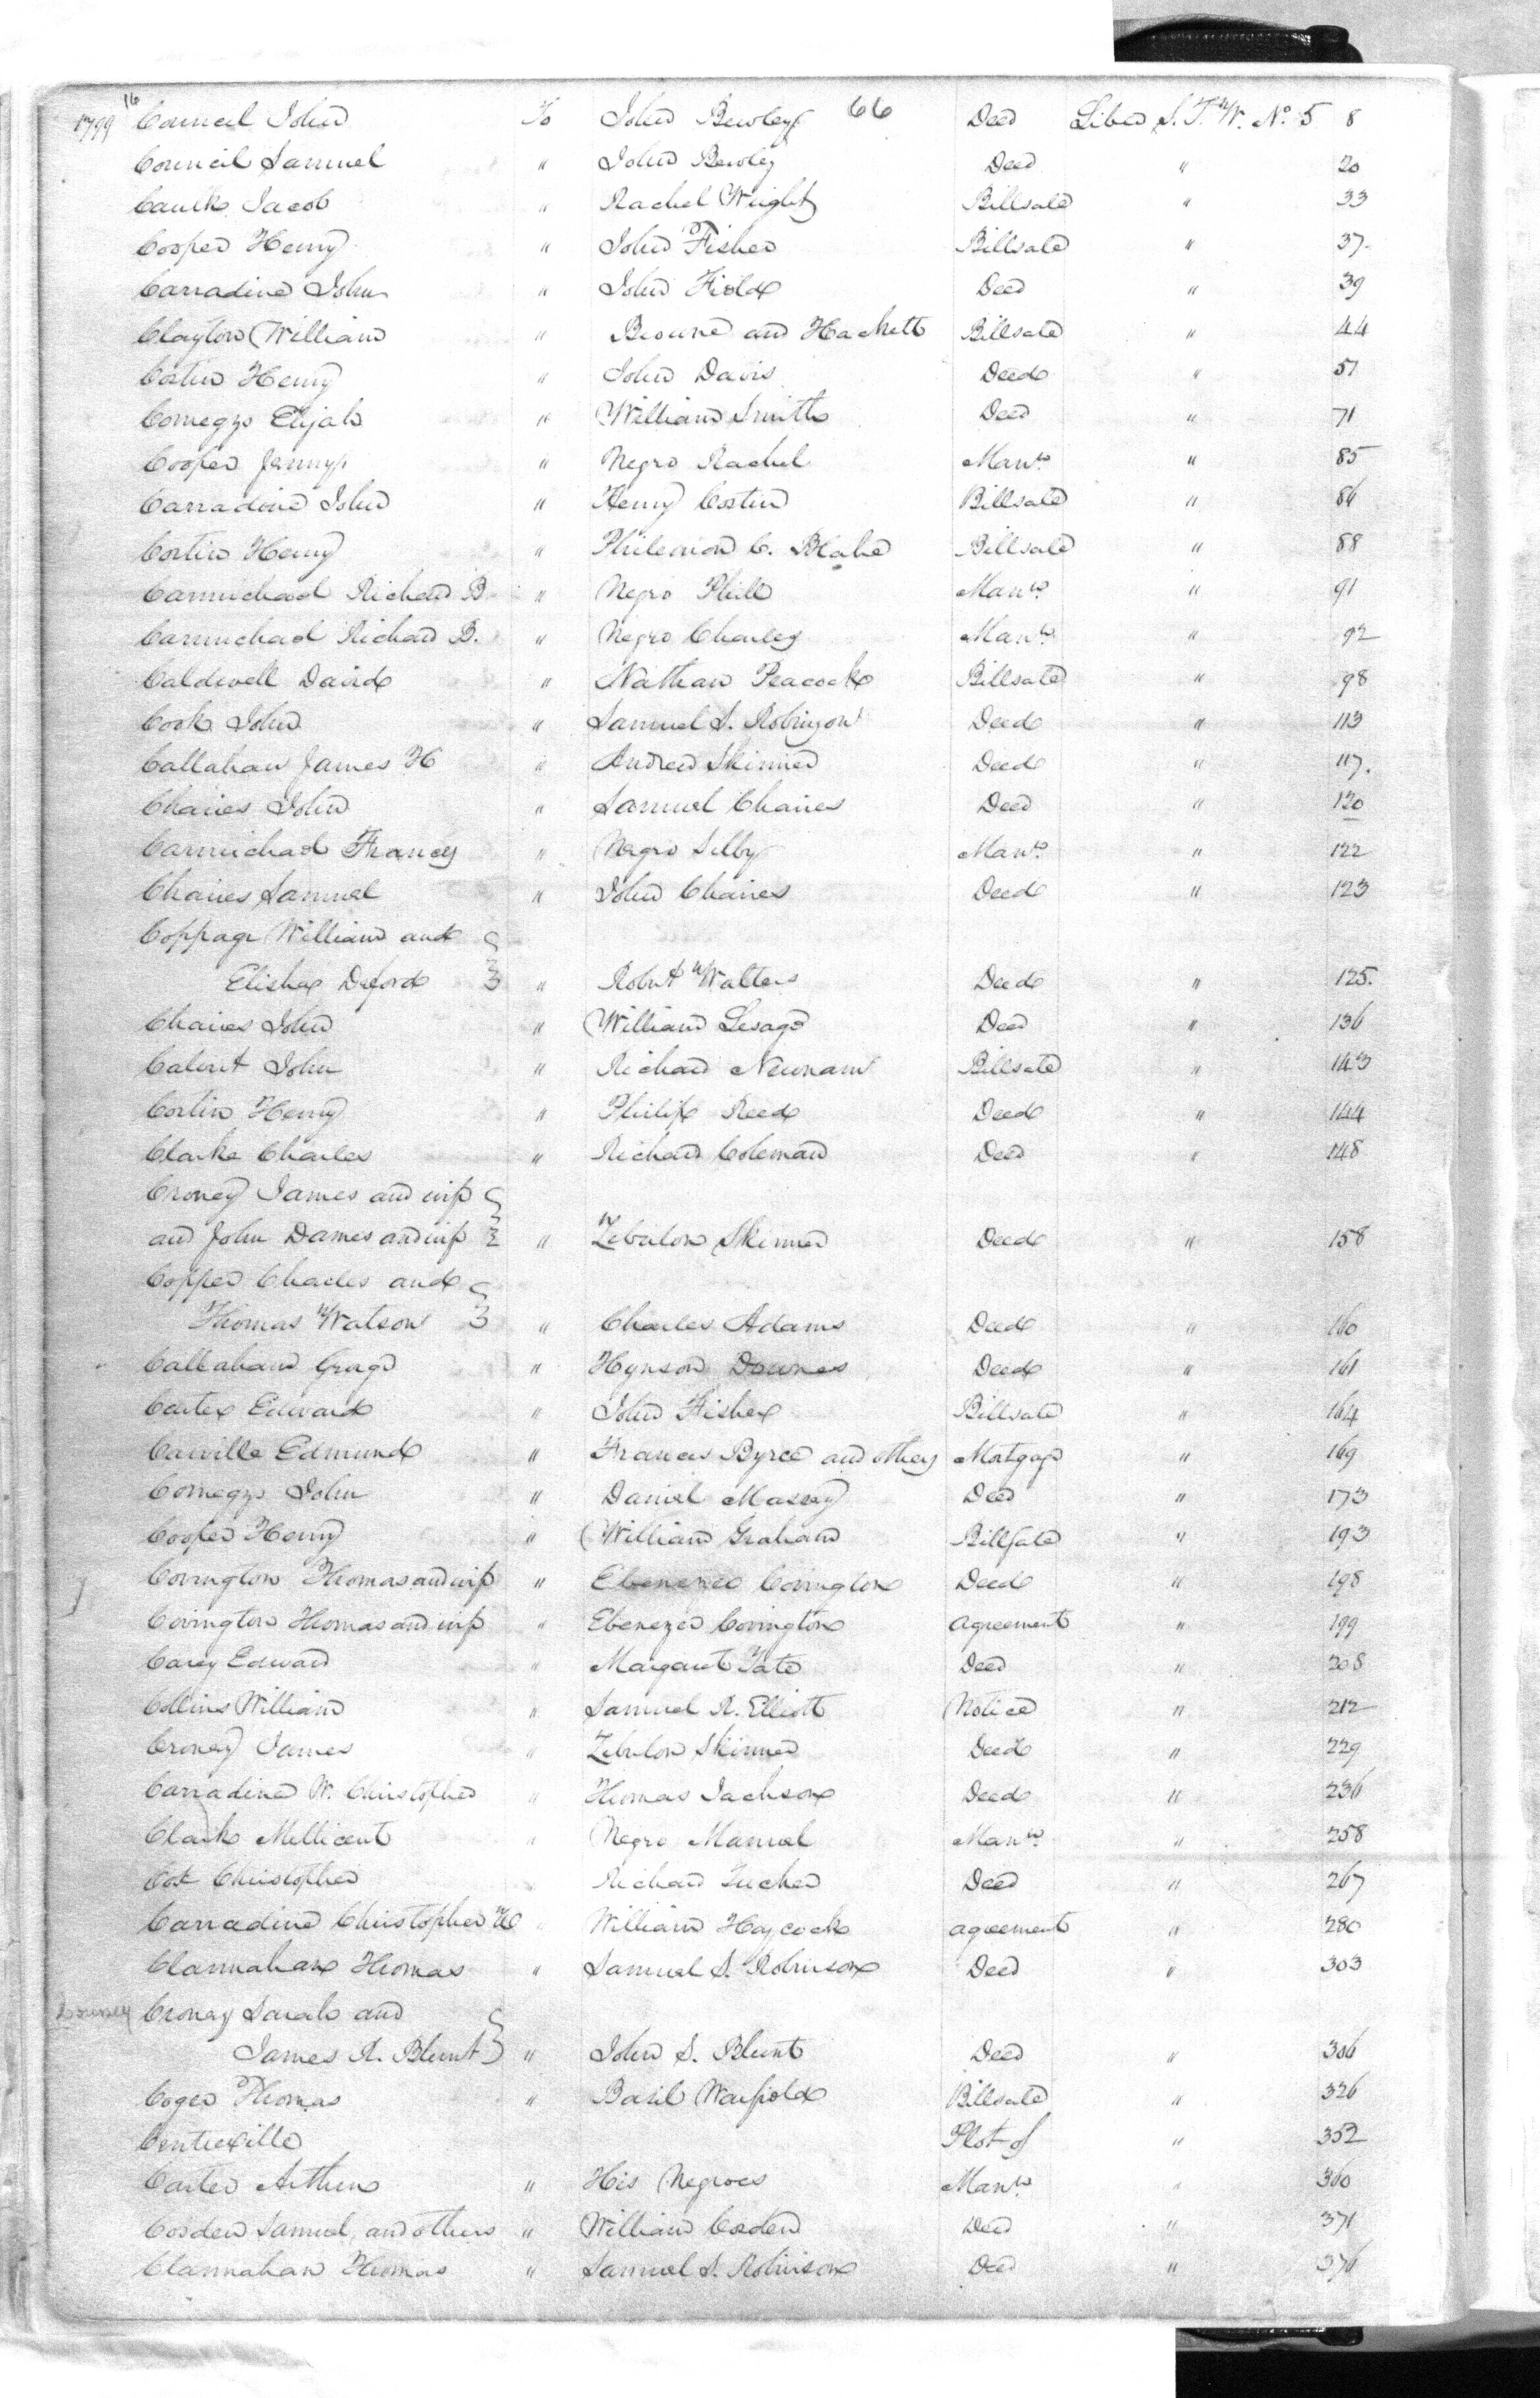 16 66
1799 Council John To John Bewley Deed Liber S. T. W. No. 5 8
Council Samuel " John Bewley Deed " 20
Caulk Jacob " Rachel Wright Billsale " 33
Cooper Henry " John Fisher Billsale " 37
Carradine John " John Field Deed " 39
Clayton William " Browne and Hackett Billsale " 44
Costin Henry " John Davis Deed " 51
Comegys Elijah " William Smith Deed " 71
Cooper Jenny " Negro Rachel Mann. " 85
Carradine John " Henry Costin Billsale " 86
Costin Henry " Philemon C. Blake Billsale " 88
Carmichael Richard B " Negro Phill Mann. " 91
Carmichael Richard B. " Negro Charles Mann. " 92
Caldwell David " Nathan Peacock Billsale " 98
Cook John " Samuel S. Robinson Deed " 113
Callahan James H " Andrew Skinner Deed " 117.
Chaires John " Samuel Chaires Deed " 120
Carmichael Francis " Negro Silby Mann. " 122
Chaires Samuel " John Chaires Deed " 123
Coppage William and
Elisha Deford " Robert Walters Deed " 125.
Chaires John " William Lesage Deed " 136
Calvert John " Richard Newnam Billsale " 143
Costin Henry " Philip Reed Deed " 144
Clarke Charles " Richard Coleman Deed " 148
Croney James and wife
and John Dames and wife " Zebulon Skinner Deed " 158
Copper Charles and
Thomas Watson " Charles Adams Deed " 160
Callahan " Hynson Downes Deed " 161
Carter Edward " John Fisher Billsale " 164
Carville Edmund " Francis Byrce and others Mortgage " 169
Comegys John " Daniel Massey Deed " 173
Cooper Henry " William Graham Billsale " 193
Covington Thomas and wife " Ebenezer Covington Deed " 198
Covington Thomas and wife " Ebenezer Covington agreement " 199
Carey Edward " Margaret Tate Deed " 208
Collins William " Samuel R. Elliott Notice " 212
Croney James " Zebulon Skinner Deed " 229
Carradine W. Christopher " Thomas Jackson Deed " 236
Clark Mellicent " Negro Manuel Mann. " 258
Cox Christopher " Richard Tucker Deed " 267
Carradine Christopher W " William Haycock agreement " 280
Clannahan Thomas " Samuel S. Robinson Deed " 303
Croney Sarah and
James R. Blunt " John S. Blunt Deed " 306
Coger Thomas " Basil Warfield Billsale " 326
Centreville Plot of " 352
Carter Arthur " His Negroes Mann. " 360
Cosden Samuel and others " William Cosden Deed " 371
Clannahan Thomas " Samuel S. Robinson Deed " 376